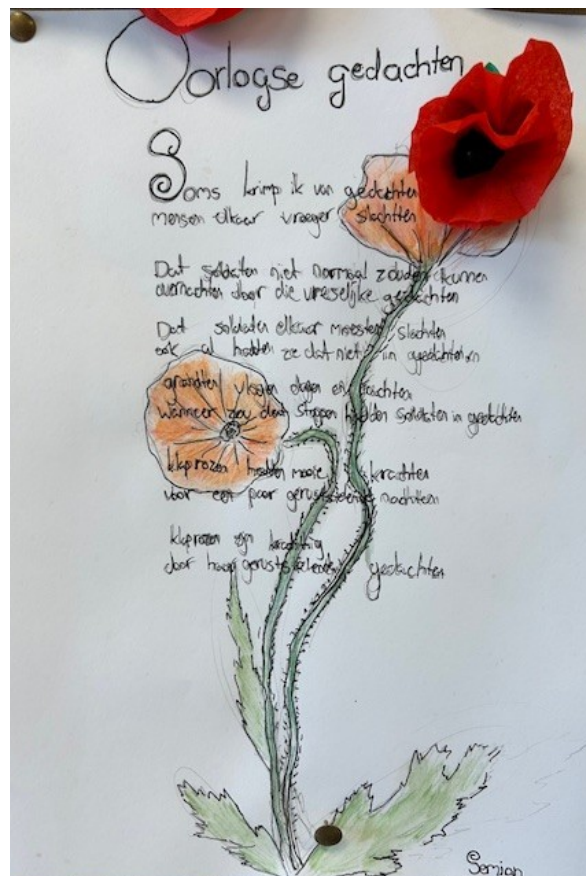 Oorlogse gedachten
Soms krimp ik van gedachten
mensen elkaar vroeger slachtten
Dat soldaten niet normaal zouden kunnen
overnachten door die vreselijke gedachten
Dat soldaten elkaar moesten slachten
ook al hadden ze dat niet in gedachten
granaten vlogen dagen en nachten
Wanneer zou dat stoppen hielden soldaten in gedachten
klaprozen hadden mooie krachten
voor een paar geruststellende nachten
klaprozen zijn krachtig
door haar geruststellende gedachten
Semian